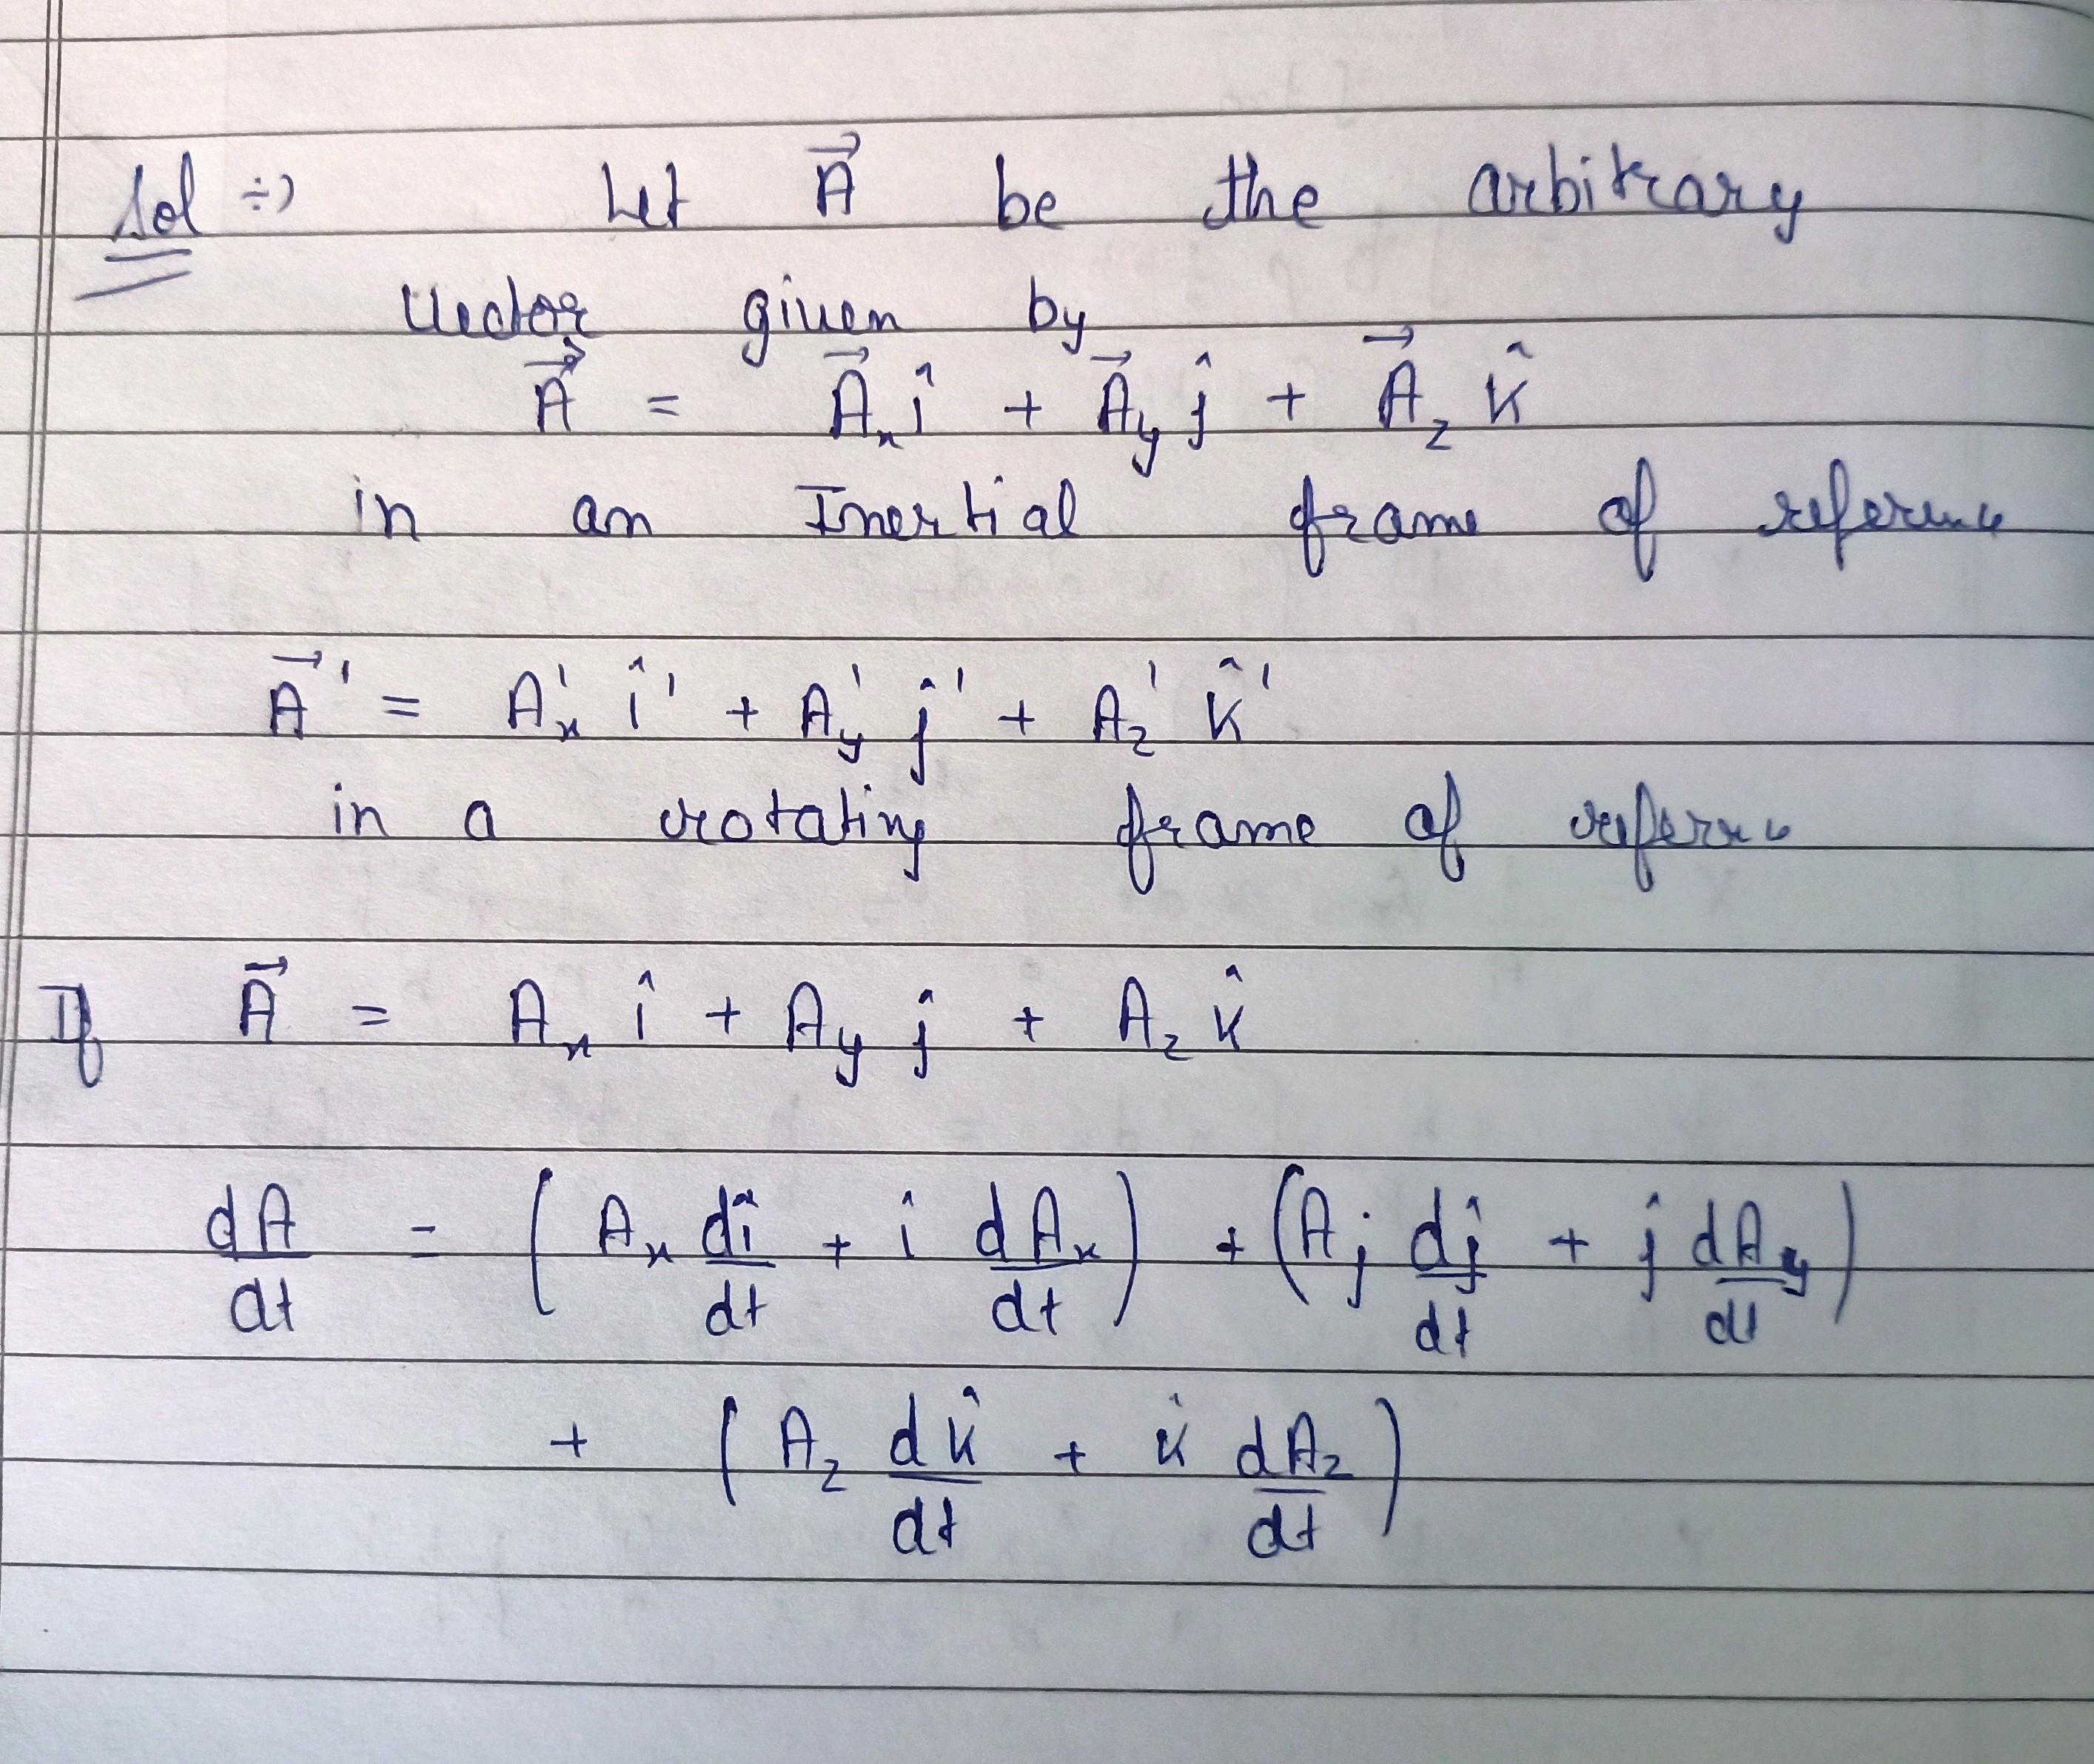 Sol ÷) Let A⃗ be the arbitrary
Vector given by
A⃗ = A⃗ₓ î + A⃗y ĵ + A⃗z k̂
in an Inertial frame of reference
A⃗' = A'ₓ î' + A'y ĵ' + A'z k̂'
in a rotating frame of
If A⃗ = Aₓ î + Ay ĵ + Az k̂
dA/dt = (Aₓ dî/dt + î dAₓ/dt) + (Aj dĵ/dt + ĵ dAy/dt)
+ (Az dk̂/dt + k̂ dAz/dt)